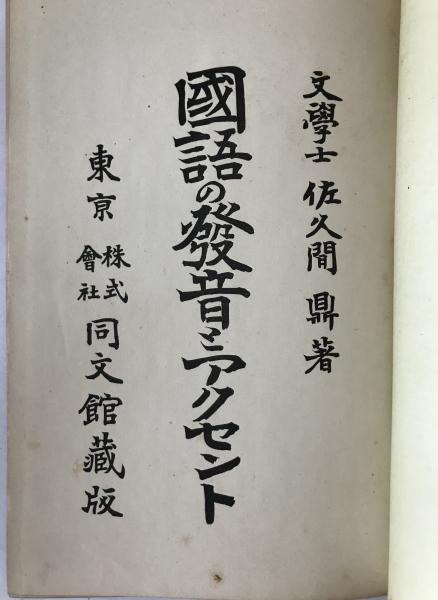 文學士 佐久間 鼎著
國語の發音とアクセント
東京 株式會社 同文館藏版